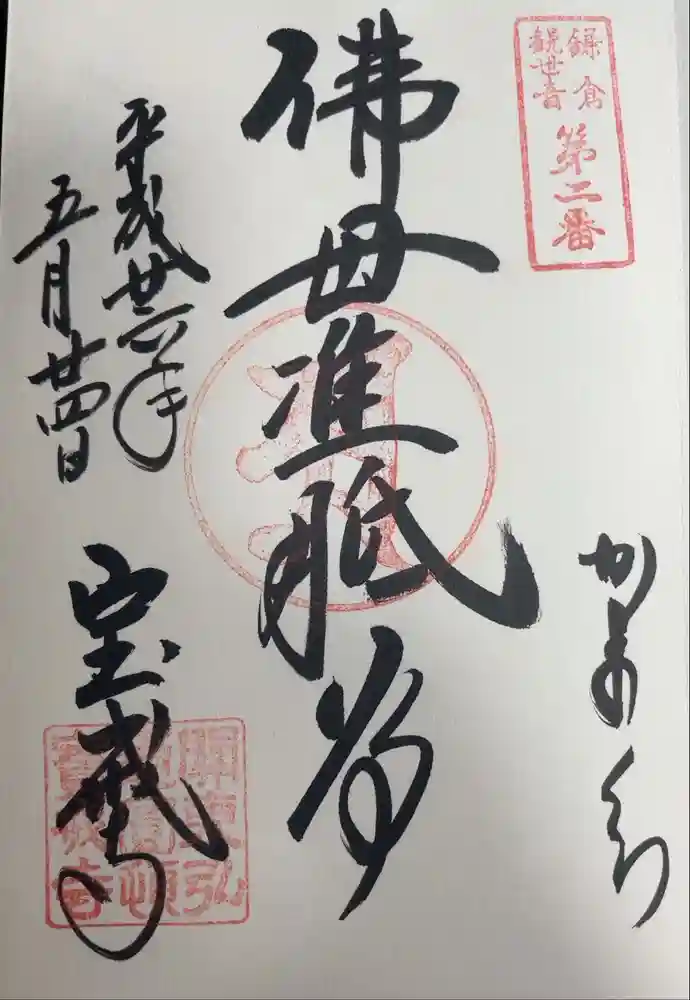 鎌倉
観世音
第二番
かまくら
佛母准胝尊
平成廿六年
五月廿四日
宝戒寺
圓頓
寶戒寺